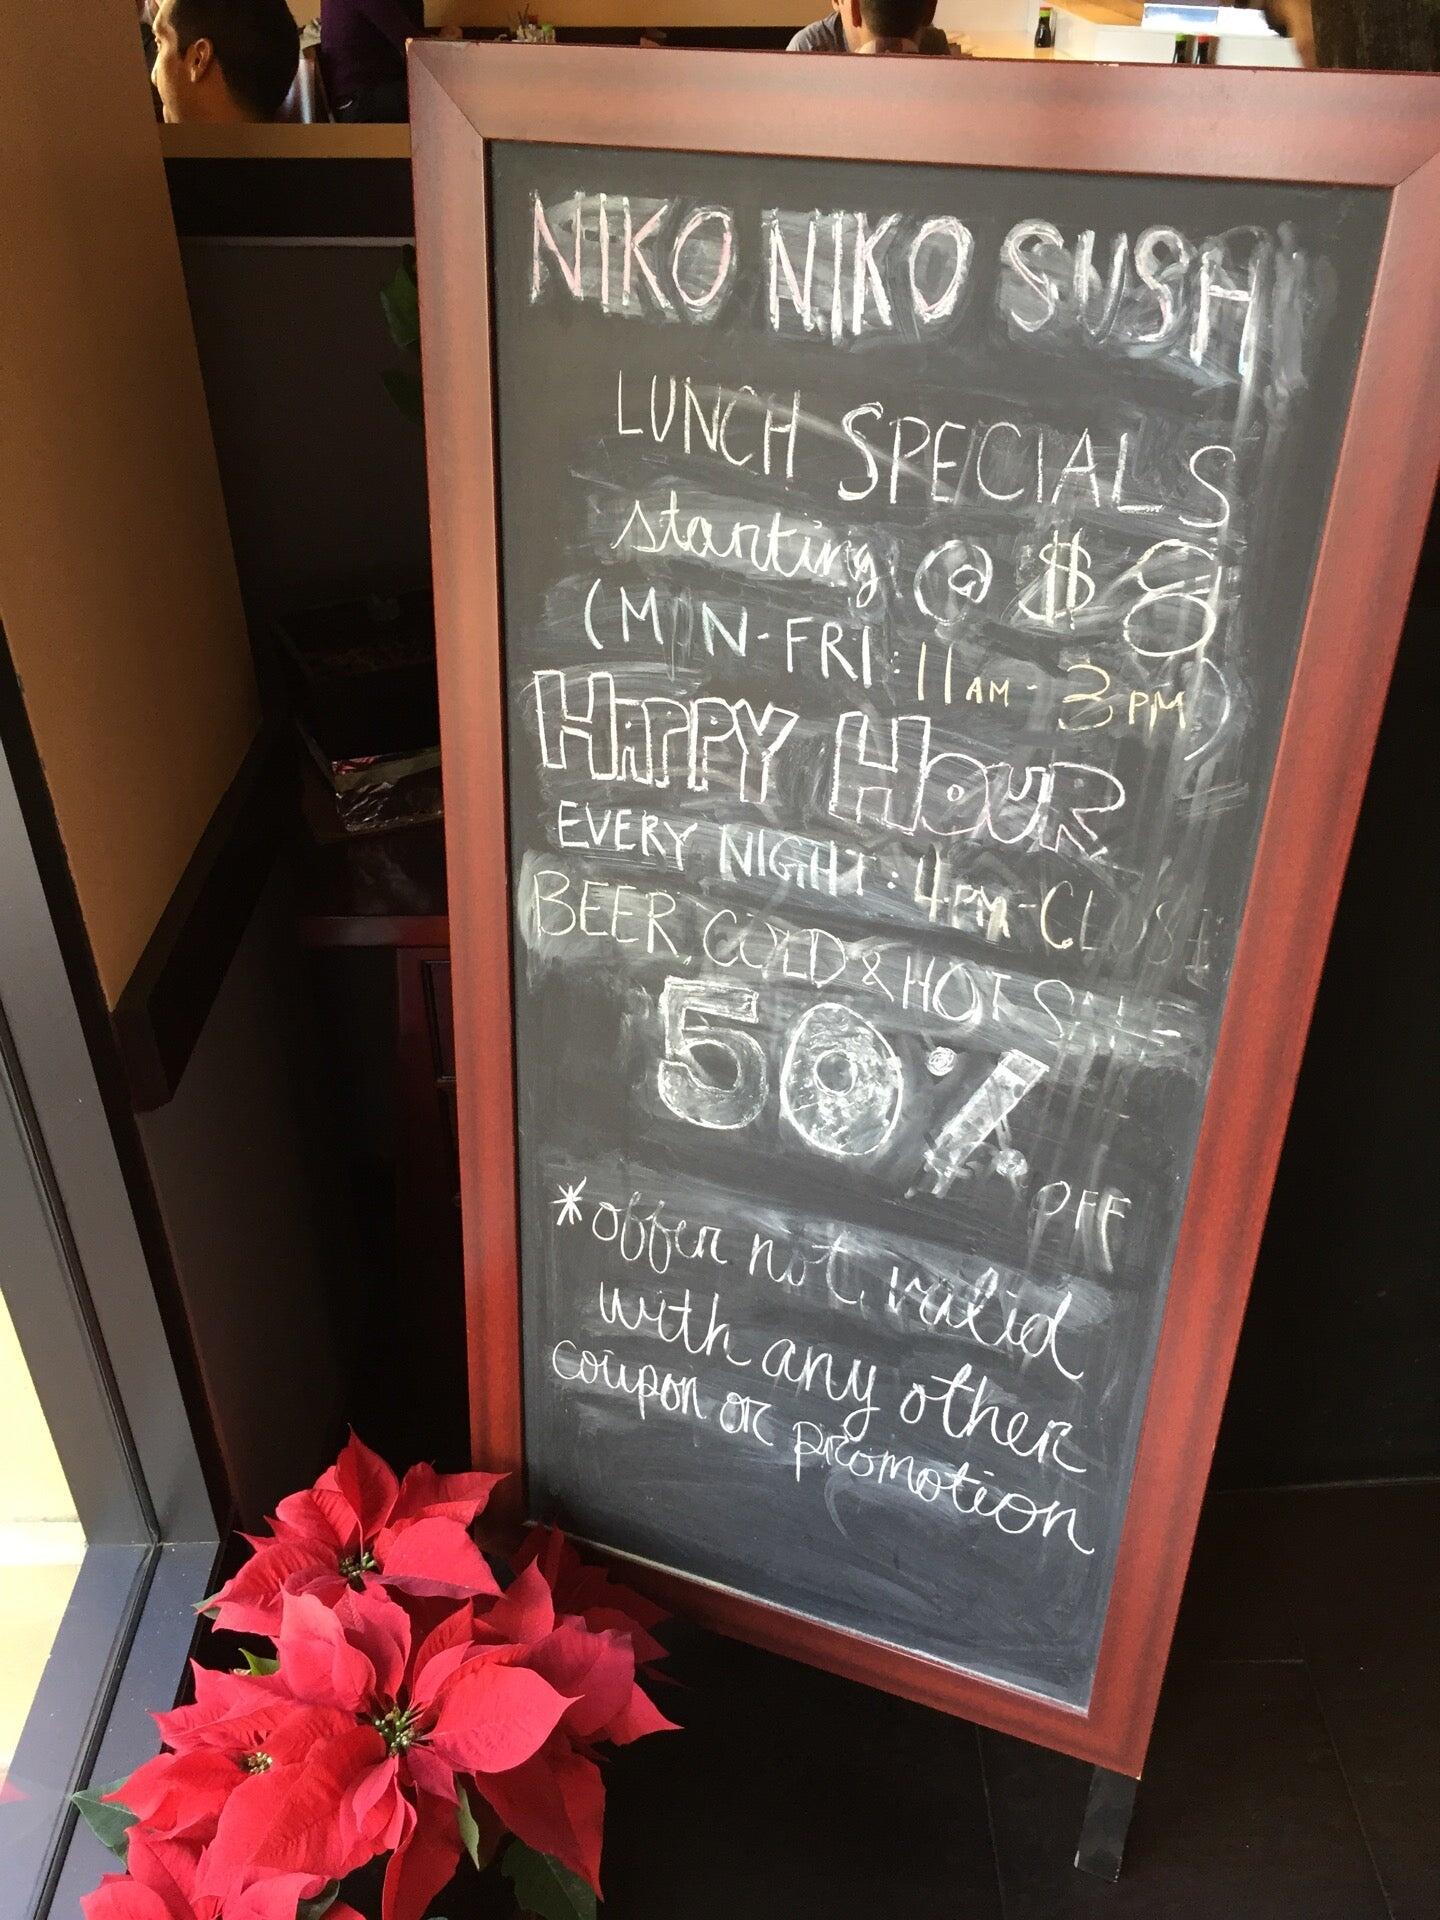 NIKO NIKO SUSH
LUNCH SPECIALS
starting @ $8
(MON-FRI: 11AM-3PM)
HAPPY HOUR
EVERY NIGHT: 4PM-CLOSE
BEER, COLD & HOT
50%
OFF
*offer not valid
with any other
coupon or promotion